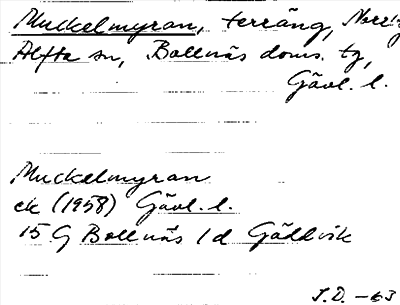 Muckelmyran, terräng,
Alfta sn, Bollnäs doms. tg,
Gävl. l.
Muckelmyran
ek (1958) Gävl. l.
15 G Bollnäs 1d Gällvik
T.D. -63